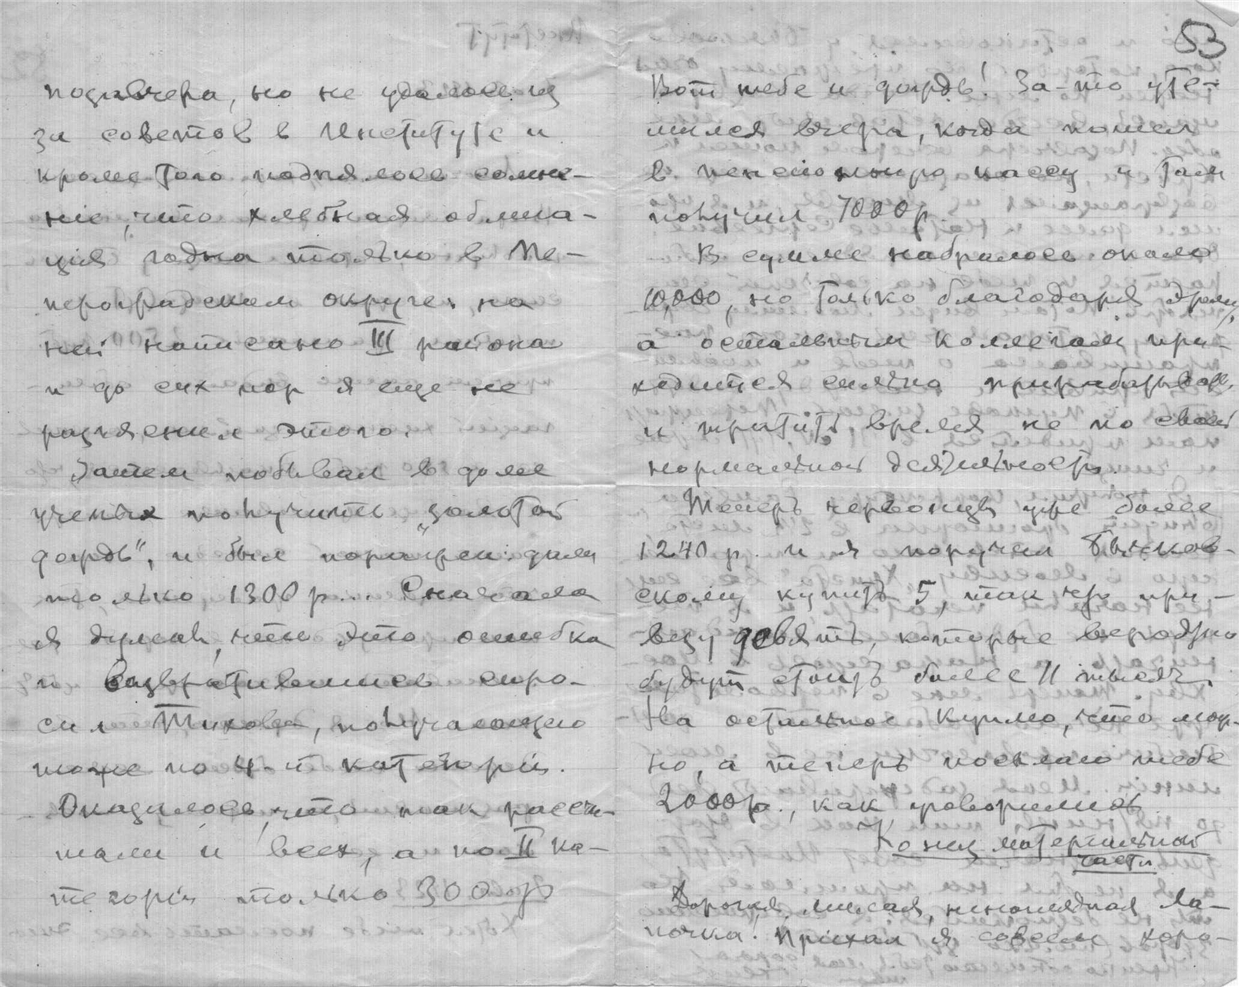 позавчера, но не удалось из
за советов в Институте и
кроме того поднялось сомне-
ніе, что хлебная облига-
ція годна только в Пе-
троградском округе, на
ней написано III района
и до сих пор я еще не
разъяснил этого.
Затем побывал в доме
ученых получить "золотой
дождь", и был поражен: дали
только 1300 р... Сначала
я думал, что это ошибка
и возвратившись спро-
сил Тихова, получающаго
тоже по 4-й категоріи.
Оказалось, что так рассчи-
тали и всех, а по II ка-
тегоріи только 300 р
53
Вот тебе и дождь! За-то уте-
шился вчера, когда пошел
в пенсіонную кассу и там
получил 7000 р
В сумме набралось около
10,000, но только благодаря
а остальным коллегам при-
ходится сильно прирабатывать
и тратить время не по своей
нормальной деятельности
Теперь червонцы уже более
1240 р. и я поручил Бычков-
скому купить 5, так что при-
везу девять, которые вероятно
будут стоить более 11 тысяч.
На остальное куплю, что мож-
но, а теперь посылаю тебе
2000 р., как уговорились
Конец матеріальной
части
Дорогая, милая, ненаглядная Ла-
почка! Пріехал я совсем хоро-